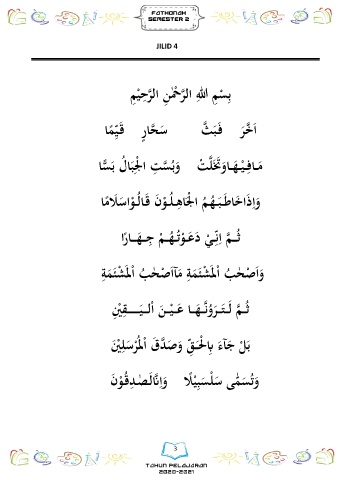 FATHONAH
SEMESTER 2
JILID 4
بِسْمِ اللهِ الرَّحْمٰنِ الرَّحِيْمِ
اَخَّرَ فَبَثَّ سَحَّارٍ قَيِّمًا
مَافِيْهَاوَتَخَلَّتْ وَبُسَّتِ الْجِبَالُ بَسًّا
وَاِذَاخَاطَبَهُمُ الْجَاهِلُوْنَ قَالُوْاسَلَامًا
ثُمَّ اِنِّيْ دَعَوْتُهُمْ جِهَارًا
وَاَصْحٰبُ الْمَشْئَمَةِ مَآاَصْحٰبُ الْمَشْئَمَةِ
ثُمَّ لَتَرَوُنَّهَا عَيْنَ الْيَقِيْنِ
بَلْ جَآءَ بِالْحَقِّ وَصَدَّقَ الْمُرْسَلِيْنَ
وَتُسَمّٰى سَلْسَبِيْلًا وَاِنَّالَصٰدِقُوْنَ
3
TAHUN PELAJARAN
2020-2021